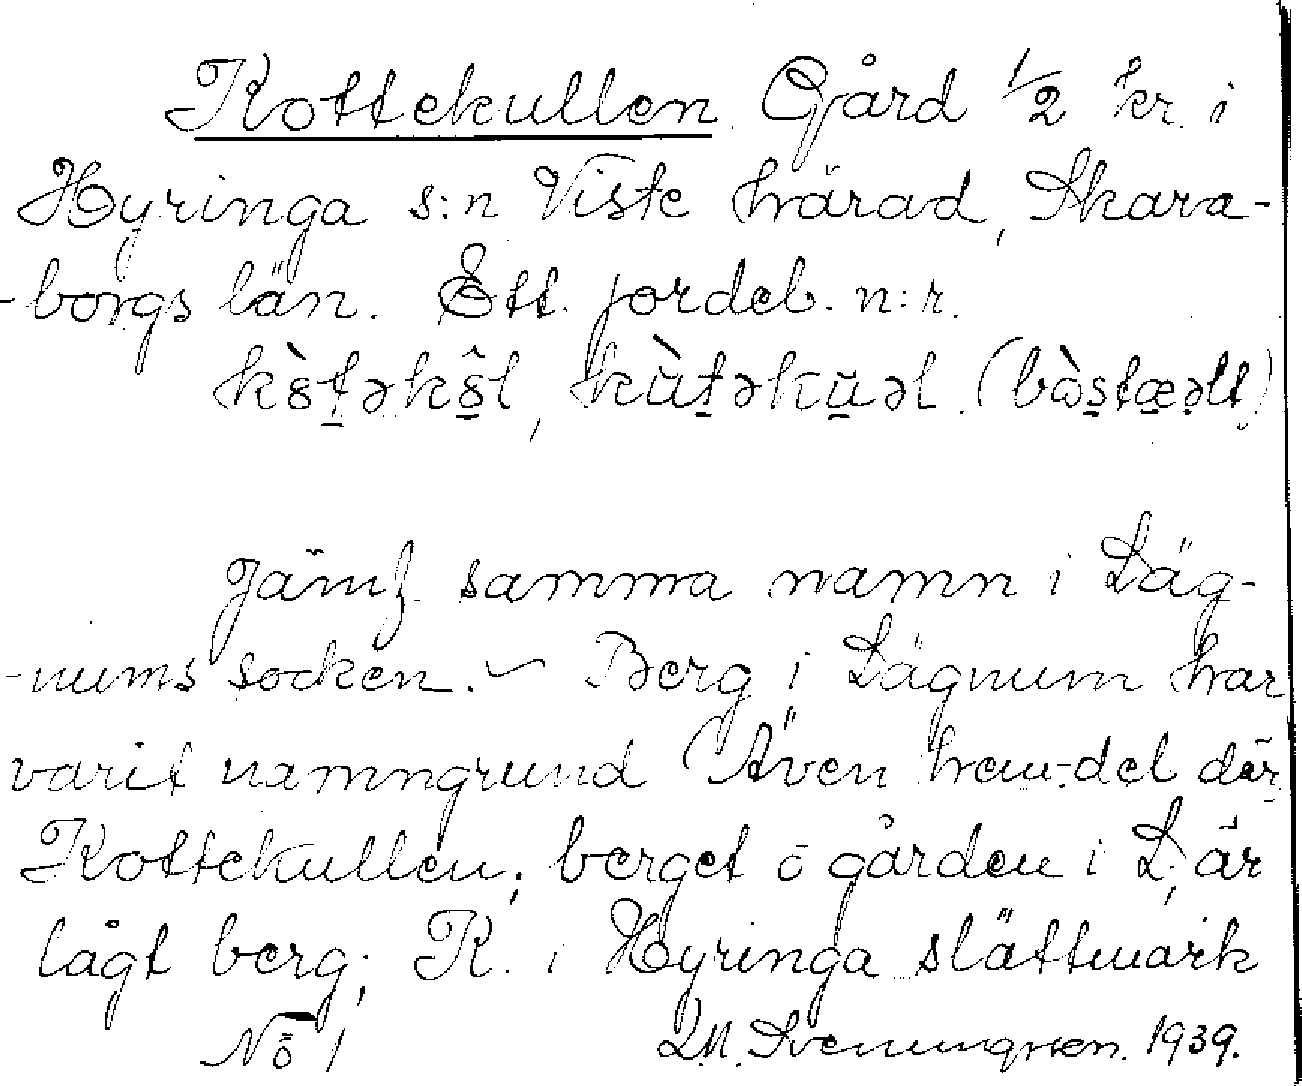 Kottekullen Gård 1/2 kr. i
Hyringa s:n Viste härad, Skara-
-borgs län. Ett. jordeb. n:r.
kòt̠əkôl, kùt̠əkŭəl (bòstæəlt)
Jämf. samma namn i Däg-
-nums socken. – Berg i Längnum har
varit namngrund (Även hem-del där
Kottekullen; berget ö gården i L; är
lågt berg; K. i Hyringa slättmark
No 1 L.M. Svenungsson. 1939.